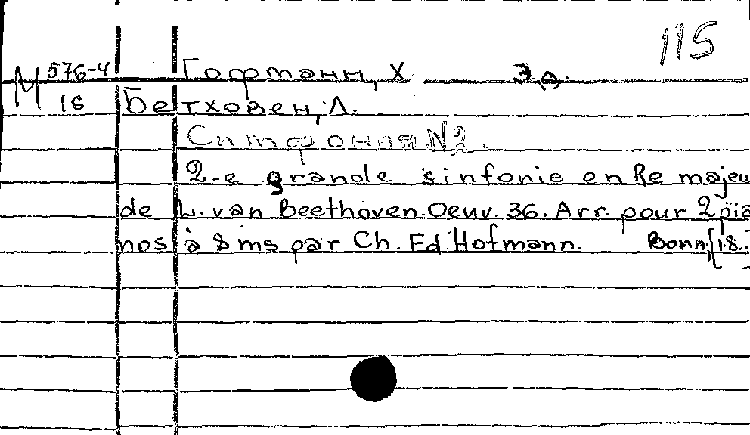 115
М 576-4 Гофманн, Х Эд.
16 Бетховен, Л.
Симфония №2.
2-e grande sinfonie en Re majeu
de L. van Beethoven. Oeuv. 36. Arr. pour 2 pia
nos à 8 ms par Ch. Ed Hofmann. Bonn, [18.